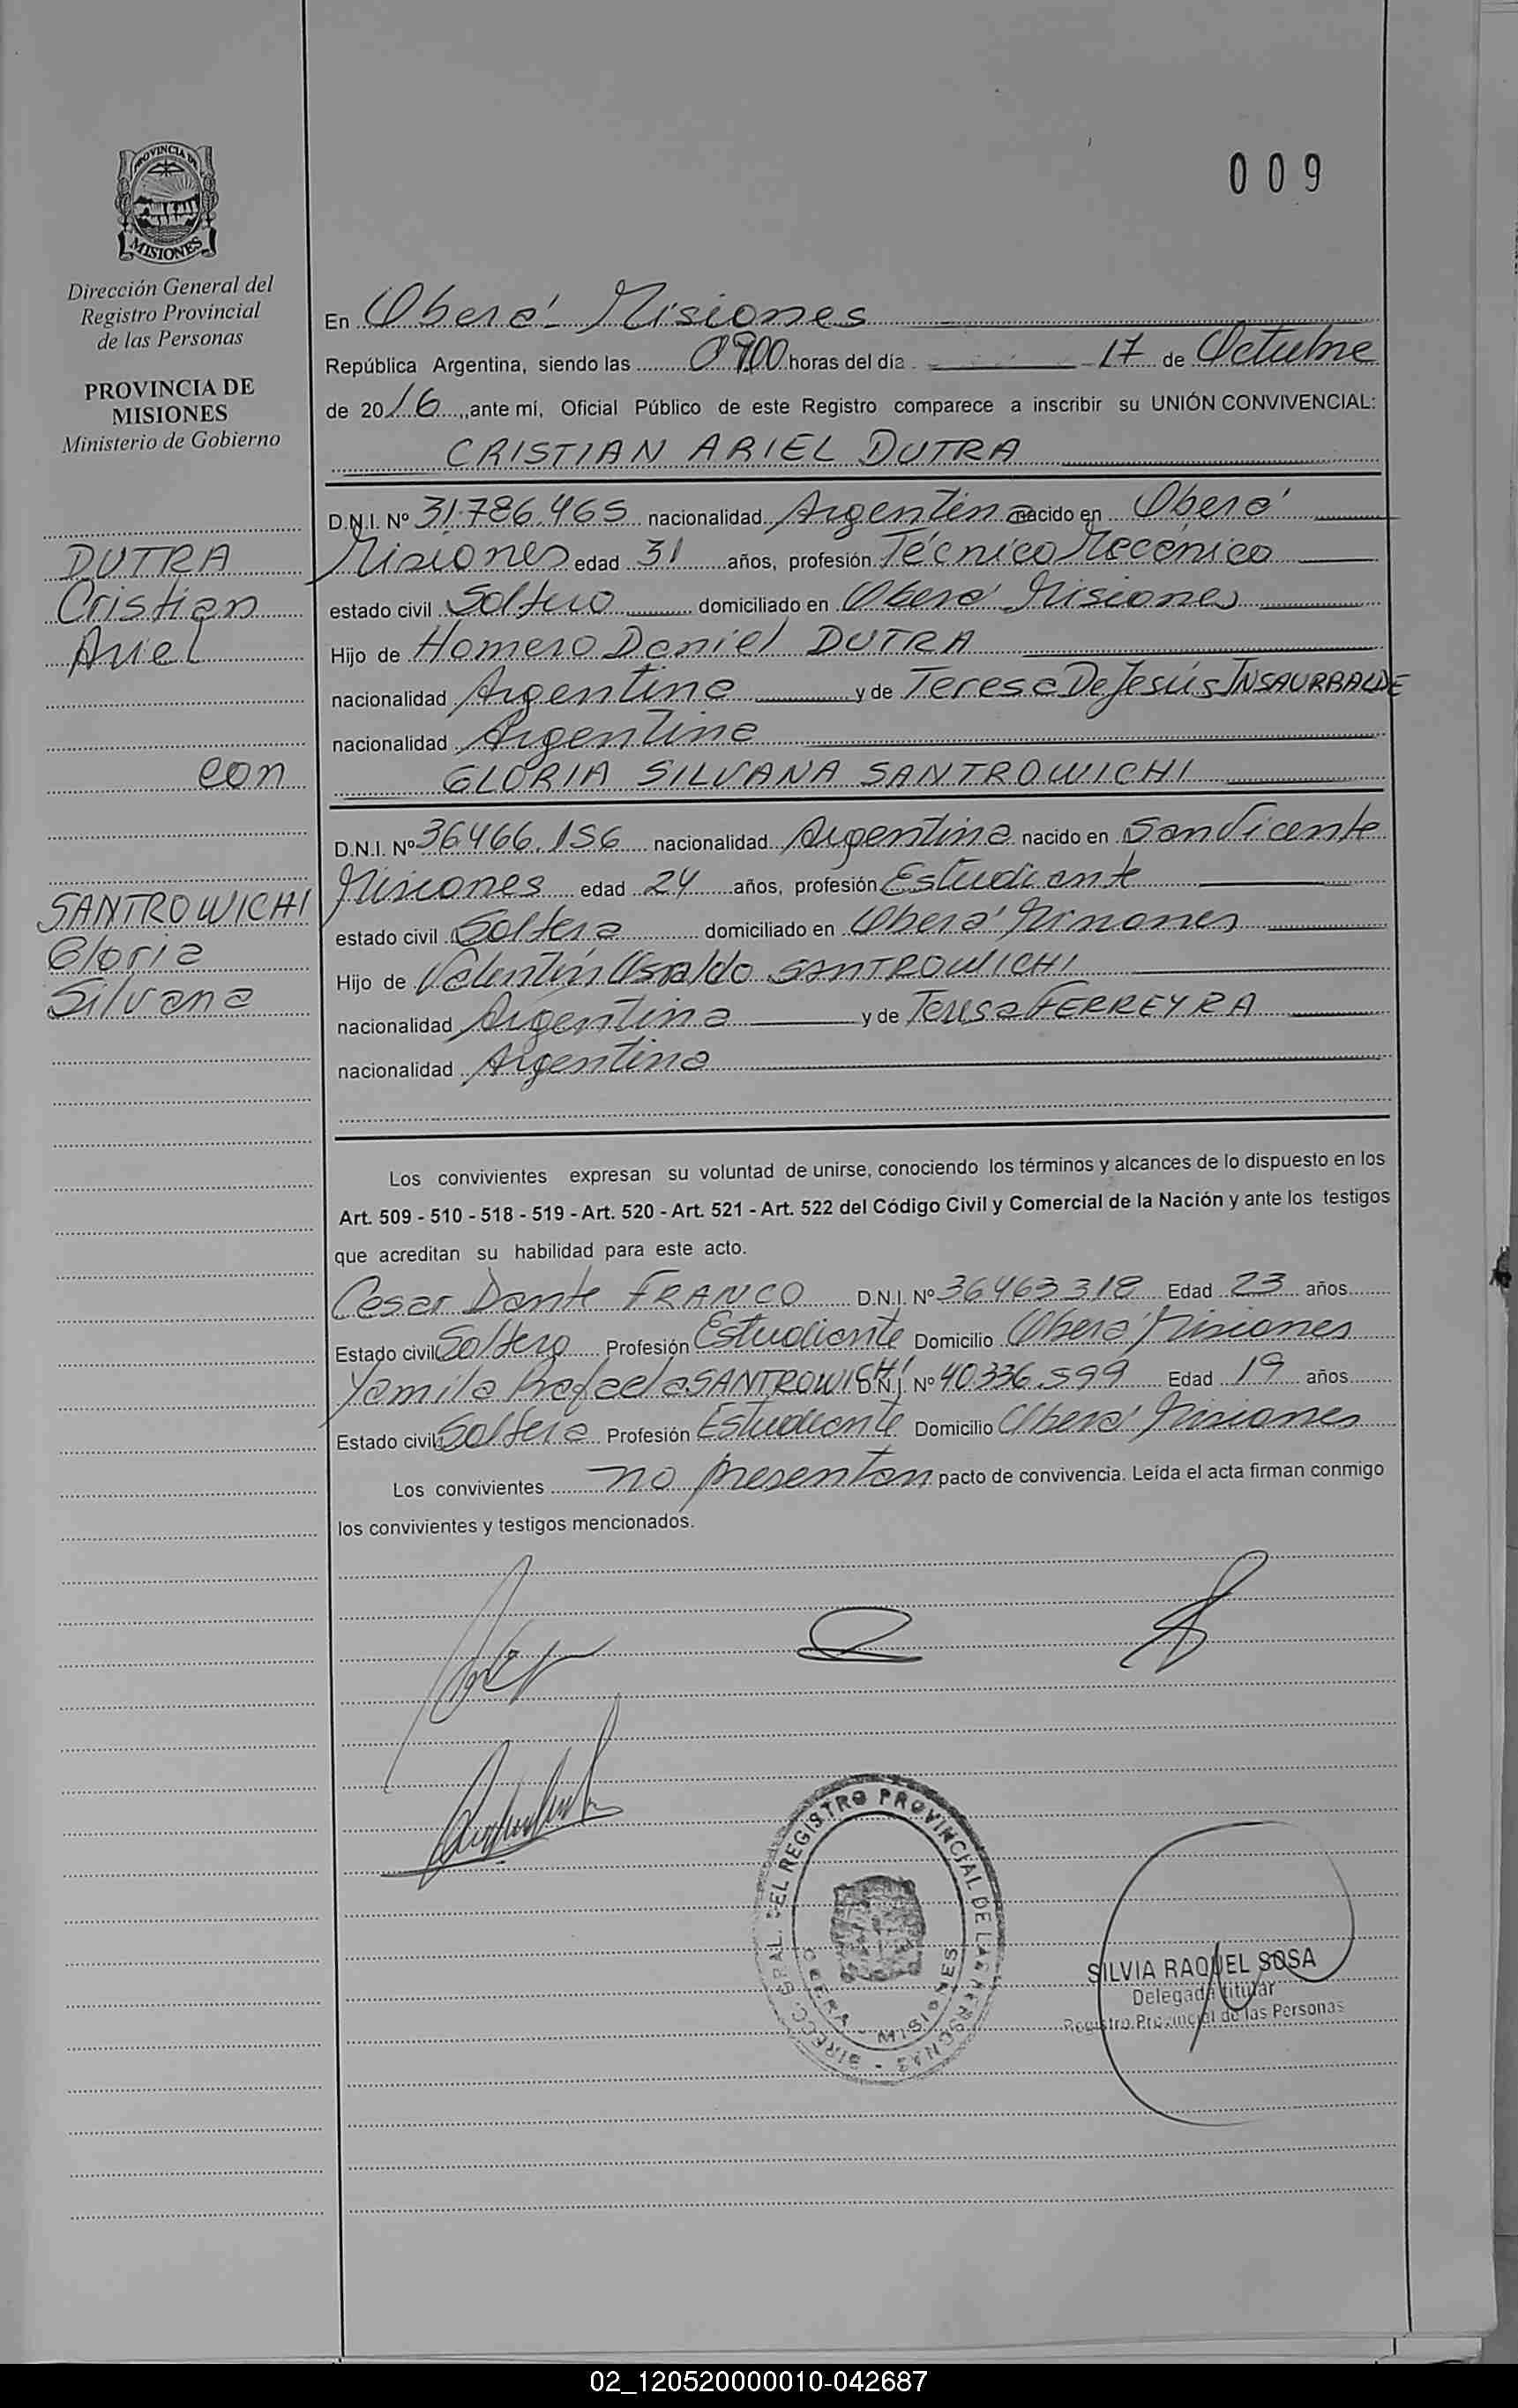 009
PROVINCIA DE
MISIONES
Dirección General del
Registro Provincial
de las Personas
PROVINCIA DE
MISIONES
Ministerio de Gobierno
DUTRA
Cristian
Ariel
con
SANTROWICHI
Gloria
Silvana
En Oberá - Misiones
República Argentina, siendo las 0900 horas del día 17 de Octubre
de 2016, ante mí, Oficial Público de este Registro comparece a inscribir su UNIÓN CONVIVENCIAL:
CRISTIAN ARIEL DUTRA
D.N.I. Nº 31.786.465 nacionalidad Argentina nacido en Oberá
Misiones edad 31 años, profesión Técnico Mecánico
estado civil Soltero domiciliado en Oberá Misiones
Hijo de Homero Daniel DUTRA
nacionalidad Argentina y de Teresa De Jesús INSAURRALDE
nacionalidad Argentina
GLORIA SILVANA SANTROWICHI
D.N.I. Nº 36466.156 nacionalidad Argentina nacido en San Vicente
Misiones edad 24 años, profesión Estudiante
estado civil Soltera domiciliado en Oberá Misiones
Hijo de Valentín Osvaldo SANTROWICHI
nacionalidad Argentina y de Teresa FERREYRA
nacionalidad Argentina
Los convivientes expresan su voluntad de unirse, conociendo los términos y alcances de lo dispuesto en los
Art. 509 - 510 - 518 - 519 - Art. 520 - Art. 521 - Art. 522 del Código Civil y Comercial de la Nación y ante los testigos
que acreditan su habilidad para este acto.
Cesar Dante FRANCO D.N.I. Nº 36463318 Edad 23 años
Estado civil Soltero Profesión Estudiante Domicilio Oberá Misiones
Yamila Rafaela SANTROWICHI D.N.I. Nº 40336.599 Edad 19 años
Estado civil Soltera Profesión Estudiante Domicilio Oberá Misiones
Los convivientes no presentan pacto de convivencia. Leída el acta firman conmigo
los convivientes y testigos mencionados.
DIRECC. GRAL. DEL REGISTRO PROVINCIAL DE LAS PERSONAS
OBERA - MISIONES
SILVIA RAQUEL SOSA
Delegada titular
Registro Provincial de las Personas
02_120520000010-042687